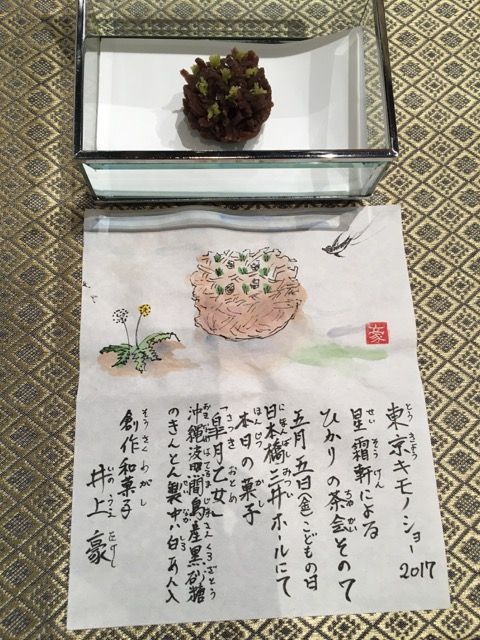 東京キモノショー2017
星霜軒による
ひかりの茶会その7
五月五日(金)こどもの日
日本橋三井ホールにて
本日の菓子
「皐月乙女」
沖縄波照間島産黒砂糖
のきんとん製中ハ白あん入
創作和菓子
井上豪
豪